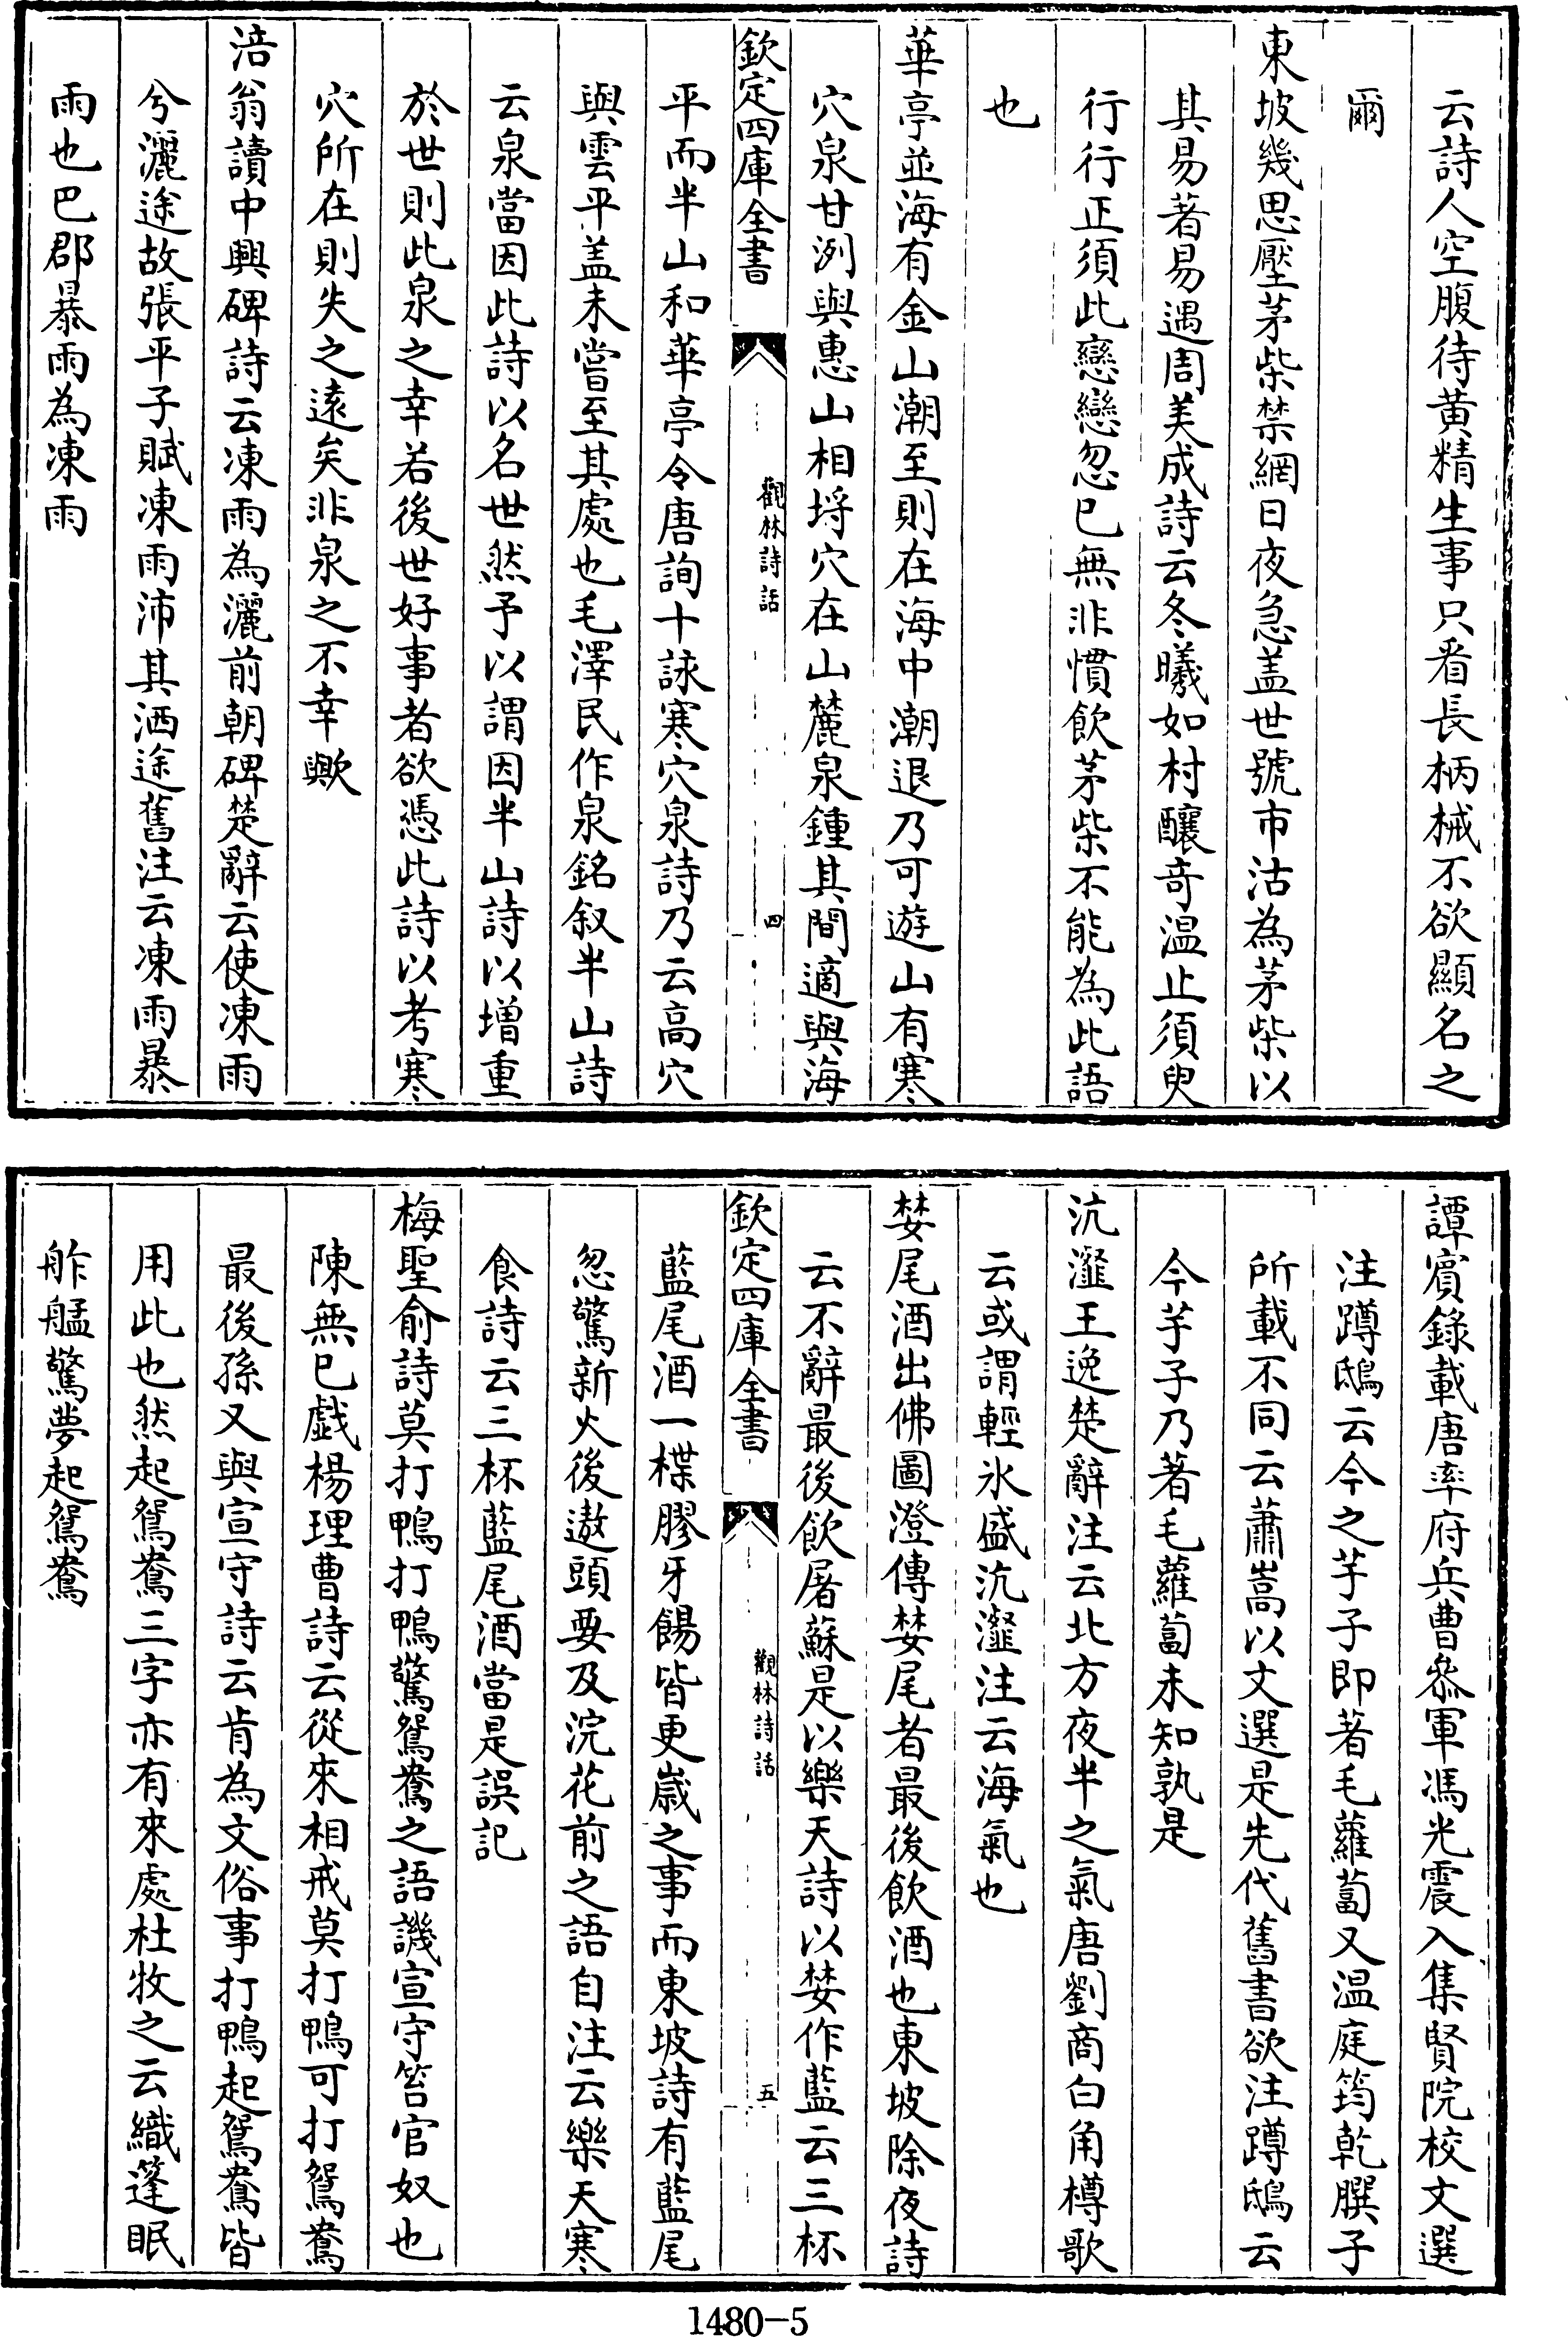 云詩人空腹待黄精生事只看長柄械不欲顯名之
爾
東坡幾思壓茅柴禁網日夜急盖世號市沽為茅柴以
其易著易遇周美成詩云冬曦如村釀竒温止須臾
行行正須此戀戀忽已無非慣飲茅柴不能為此語
也
華亭並海有金山潮至則在海中潮退乃可遊山有寒
穴泉甘洌與惠山相埒穴在山麓泉鍾其間適與海
欽定四庫全書
觀林詩話
四
平而半山和華亭令唐詢十詠寒穴泉詩乃云高穴
與雲平盖未嘗至其處也毛澤民作泉銘叙半山詩
云泉當因此詩以名世然予以謂因半山詩以增重
於世則此泉之幸若後世好事者欲憑此詩以考寒
穴所在則失之遠矣非泉之不幸歟
涪翁讀中興碑詩云凍雨為灑前朝碑楚辭云使凍雨
兮灑途故張平子賦凍雨沛其洒途舊注云凍雨暴
雨也巴郡暴雨為凍雨
譚賓錄載唐率府兵曹叅軍馮光震入集賢院校文選
注蹲鴟云今之芋子即著毛蘿蔔又温庭筠乾𦠆子
所載不同云蕭嵩以文選是先代舊書欲注蹲鴟云
今芋子乃著毛蘿蔔未知孰是
沆瀣王逸楚辭注云北方夜半之氣唐劉商白角樽歌
云或謂輕氷盛沆瀣注云海氣也
婪尾酒出佛圖澄傳婪尾者最後飲酒也東坡除夜詩
云不辭最後飲屠蘇是以樂天詩以婪作藍云三杯
欽定四庫全書
觀林詩話
五
藍尾酒一楪膠牙餳皆更嵗之事而東坡詩有藍尾
忽驚新火後遨頭要及浣花前之語自注云樂天寒
食詩云三杯藍尾酒當是誤記
梅聖俞詩莫打鴨打鴨驚鴛鴦之語譏宣守笞官奴也
陳無已戯楊理曹詩云從來相戒莫打鴨可打鴛鴦
最後孫又與宣守詩云肯為文俗事打鴨起鴛鴦皆
用此也然起鴛鴦三字亦有來處杜牧之云織篷眠
舴艋驚夢起鴛鴦
1480-5